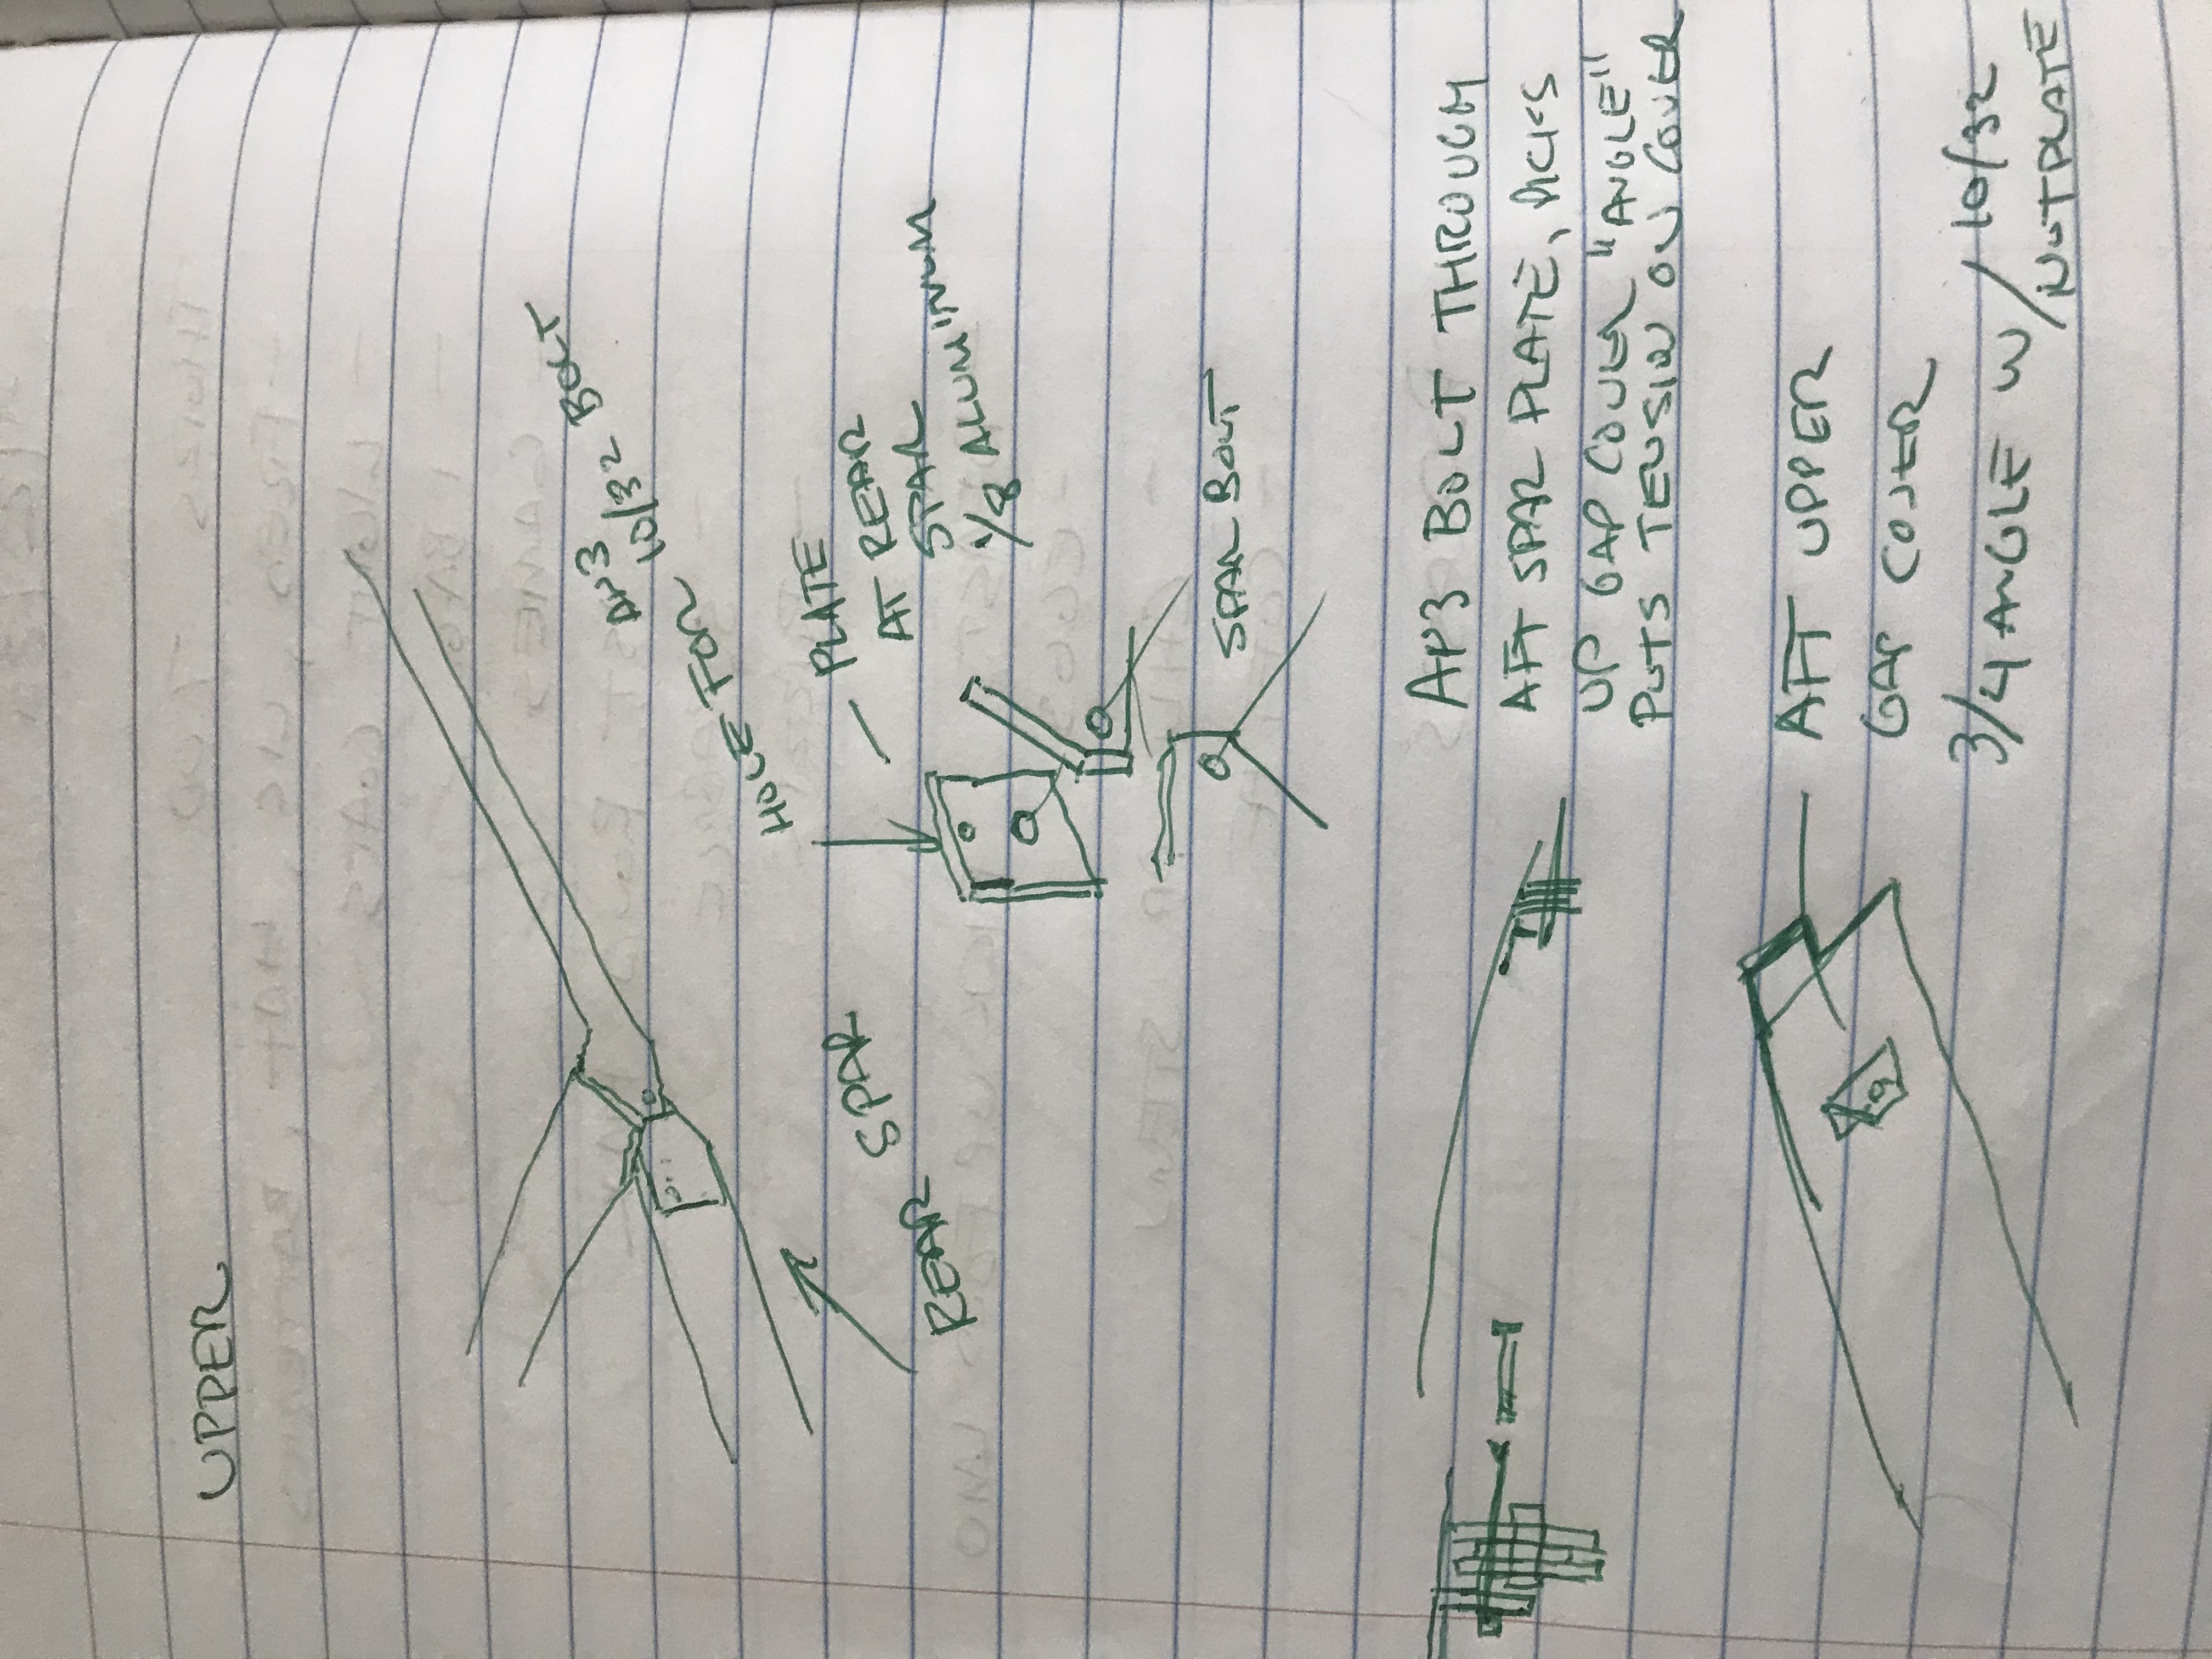 UPPER
HOLE FOR
AN3
10/32 BOLT
PLATE
AT REAR
SPAR
1/8 ALUMINUM
REAR SPAR
SPAR BOLT
AP3 BOLT THROUGH
AFT SPAR PLATE, PICKS
UP GAP COVER "ANGLE"
PUTS TENSION ON COVER
AFT UPPER
GAP COVER
3/4 ANGLE W/ 10/32
NUTPLATE